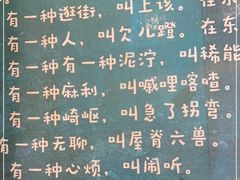 有一种逛街，叫上该。在
有一种人，叫欠儿蹬。在东
有一种有一种泥泞，叫稀能
有一种麻利，叫嘁哩喀喳。
有一种崎岖，叫急了拐弯。
有一种无聊，叫屋脊六兽。
有一种心烦，叫闹听。